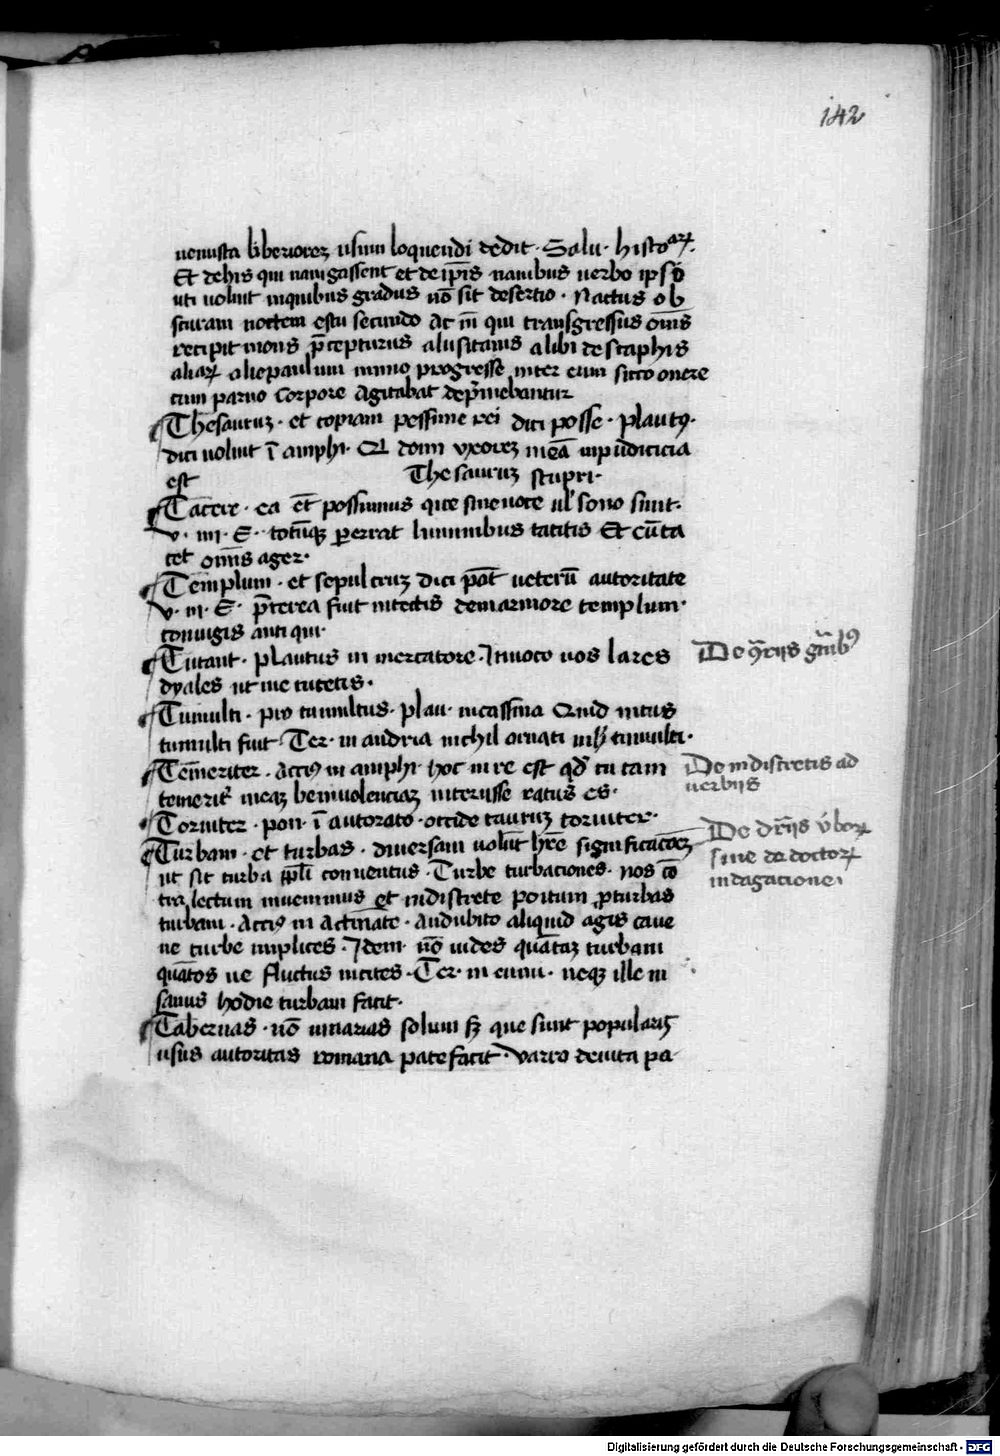 142
uenusta liberiorez usum loquendi dedit · Salu · histoaꝝ.
Et de his qui nauigassent et de ip̄is nauibus uerbo ipso
uti voluit in quibus gradus nō sit desertio · Nactus ob
scuram noctem estu secundo ac
qui transgressus om̄s
recipit mons p̄cepturus a lusitanis alibi de scaphis
aliaꝝ alie paulum
progresse inter eum sicco onere
cum paruo corpore agitabat dep̄mebantur
Thesauruz · et copiam pessime rei dici posse · plautꝰ ·
dici voluit ī amphi · Q domi vxorez meā inpudicicia
est Thesauruz stupri ·
Tacere · ea et̄ possumus que sine uoce ul̓ sono sunt ·
v · iiii · E · totūqꝫ perrat luminibus tacitis Et cūcta
cet om̄is ager ·
Templum · et sepulcruz dici pōt ueterū autoritate
v · iii · E · p̄terea fuit in tectis de marmore templum ·
coniugis antiqui ·
Tutant · plautus in mercatore · Inuoco uos lares
dyales ut me tutetis ·
Tumulti · pro tumultus · plau · in cassina Quid intus
tumulti fuit Ter · in andria nichil ornati nihil tumulti ·
Tem̄eriter · Acciꝰ in amphi · hoc in re est qd̄ tu tam
temerit̓ meaz beniuolenciaz interisse ratus es ·
Toruiter · pon · ī autorato · occide tauruz toruiter ·
Turbam · et turbas · diuersam volūt hr̄e significacōez
ut sit turba pp̄li conuentus · Turbe turbaciones · nos cō
tra lectum inuenimus et indiscrete poni tum ꝓ turbas
turbam · Acciꝰ in
· An dubito aliquid agis caue
ne turbe implices · Idem · nō uides quātaz turbam
quātos ue fluctus incites · Ter · in eunu · neqꝫ ille in
sanus hodie turbam facit ·
Tabernas · nō uinarias solum sꝫ que sunt popularis
usus autoritas romana patefacit · Varro de uita pa
De ꝯtrarijs gn̄ibꝰ
De indiscretis ad
uerbijs
De dr̄ijs v̓boꝝ
sine
doctoꝝ
indagacione
Digitalisierung gefördert durch die Deutsche Forschungsgemeinschaft - DFG